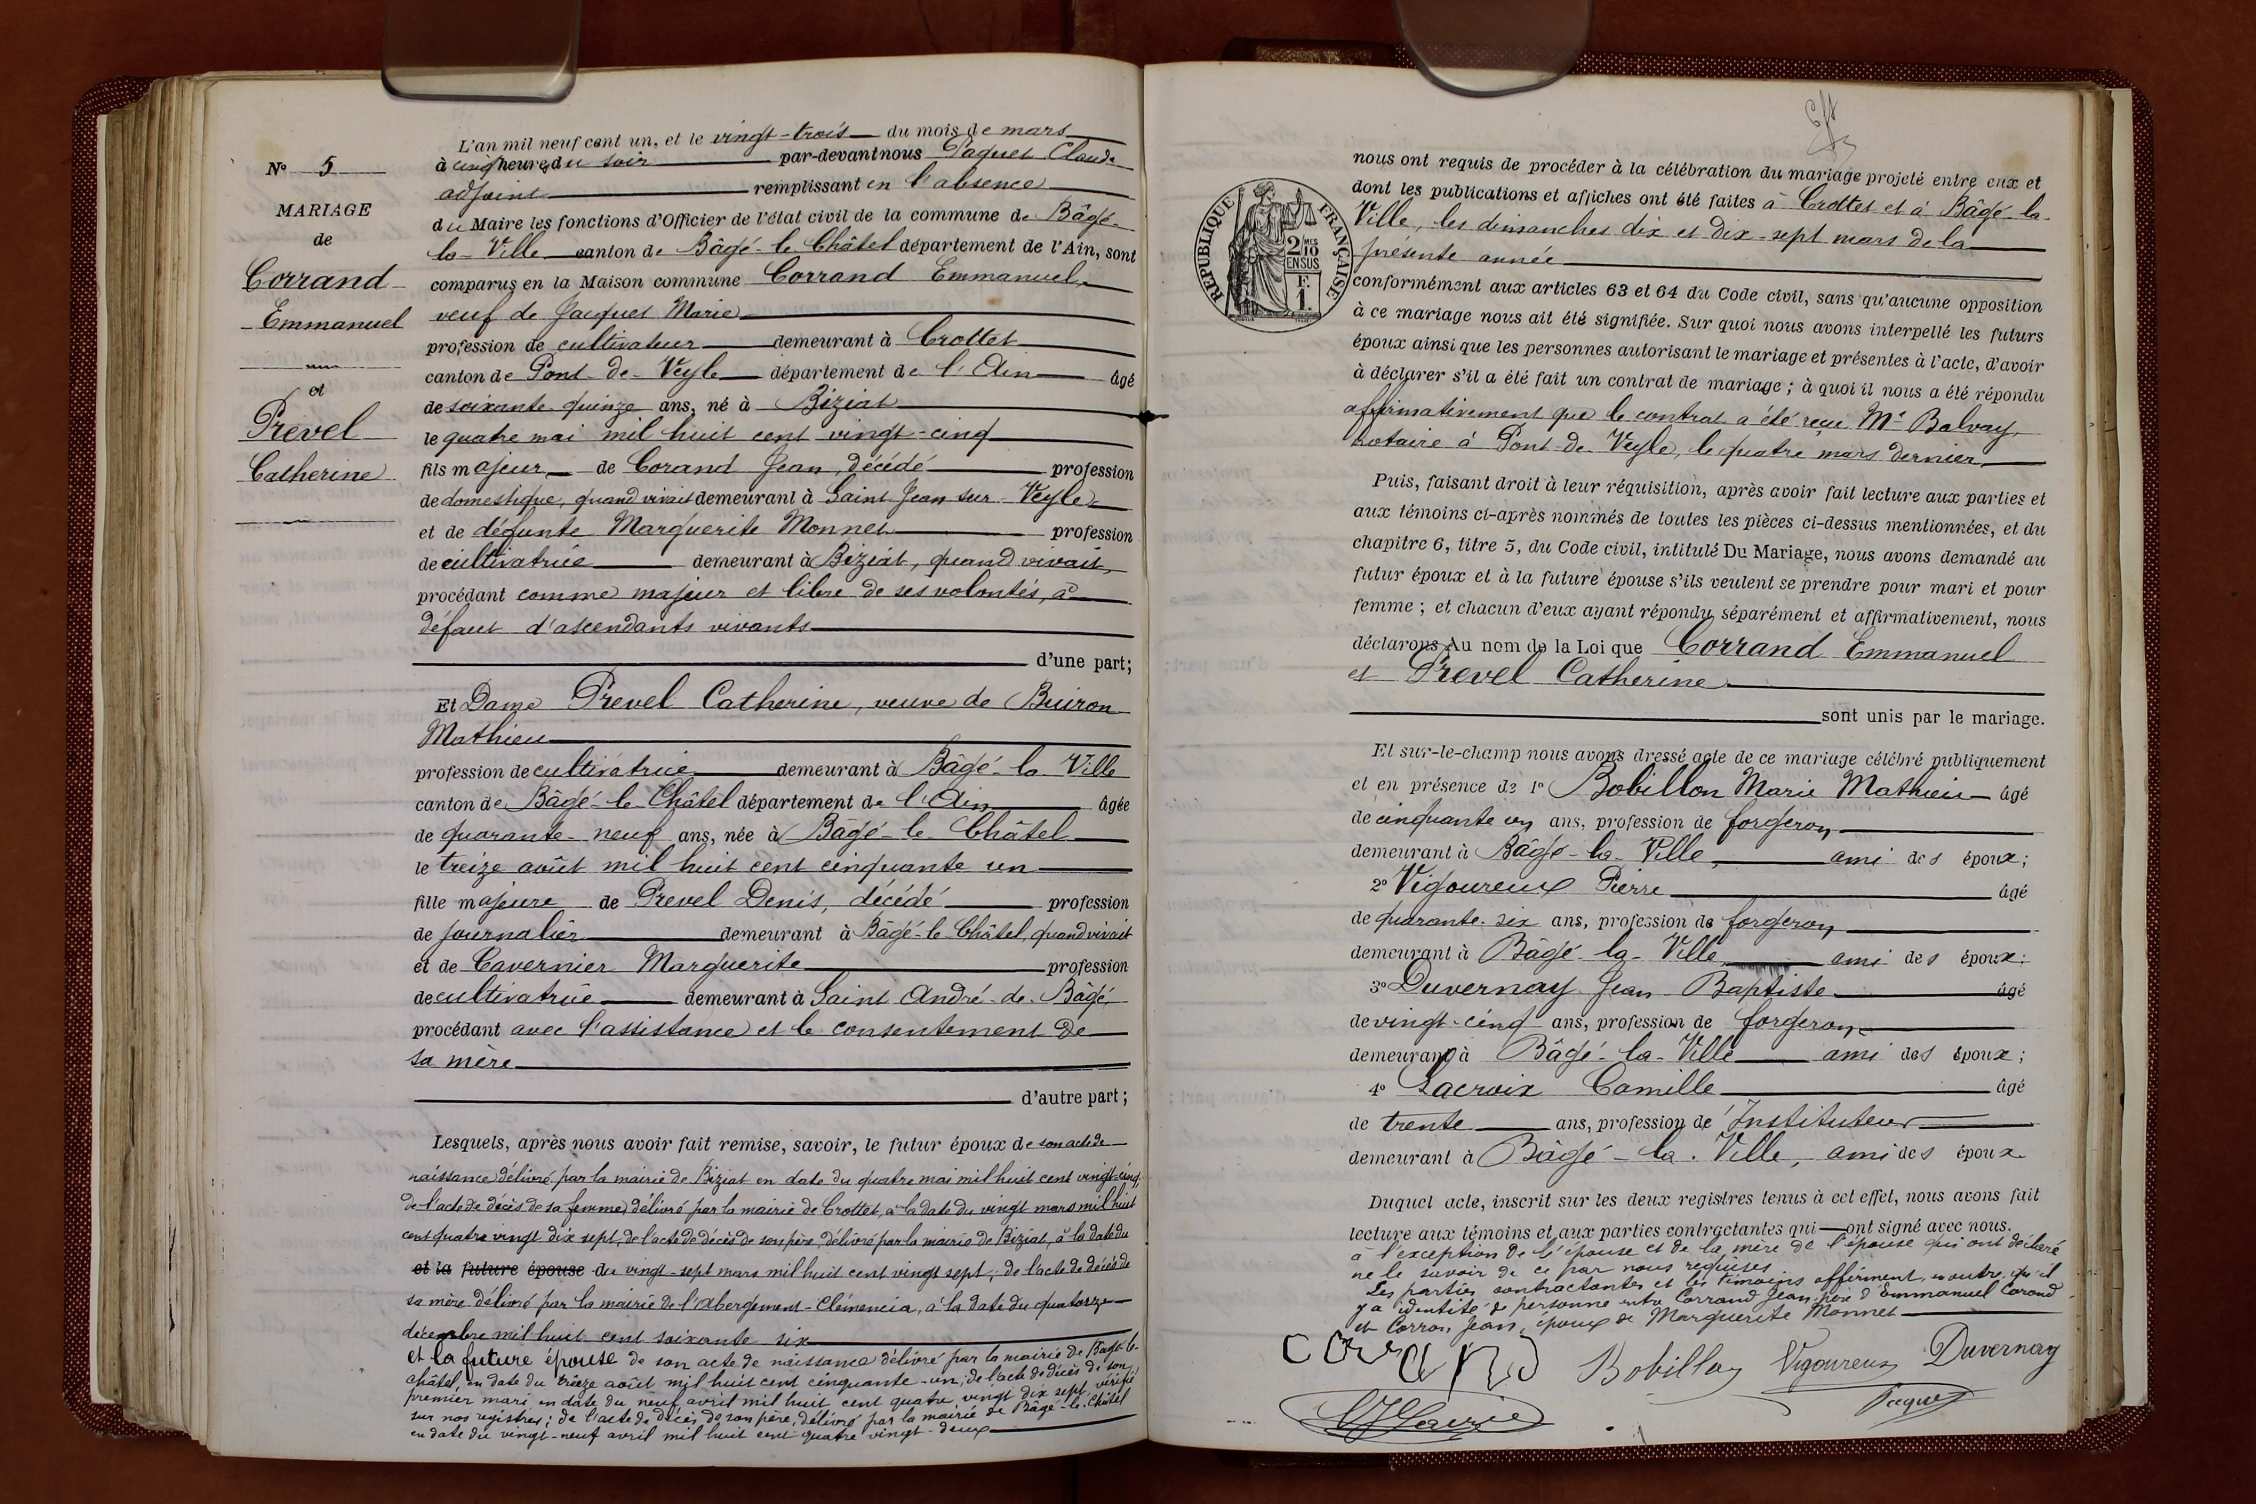 N° 5
MARIAGE
de
Corrand
Emmanuel
et
Prevel
Catherine
L'an mil neuf cent un, et le vingt-trois du mois de mars
à cinq heures du soir par-devant nous Paquet Claude
adjoint remplissant en l'absence
du Maire les fonctions d'Officier de l'état civil de la commune de Bâgé-
la-Ville canton de Bâgé-le-Châtel département de l'Ain, sont
comparus en la Maison commune Corrand Emmanuel,
veuf de Jacquet Marie
profession de cultivateur demeurant à Crottet
canton de Pont-de-Veyle département de l'Ain âgé
de soixante-quinze ans, né à Biziat
le quatre mai mil huit cent vingt-cinq
fils majeur de Corand Jean, décédé profession
de domestique, quand vivait demeurant à Saint Jean sur Veyle
et de défunte Marguerite Monnet profession
de cultivatrice demeurant à Biziat, quand vivait,
procédant comme majeur et libre de ses volontés, à
défaut d'ascendants vivants
d'une part;
Et Dame Prevel Catherine, veuve de Buiron
Mathieu
profession de cultivatrice demeurant à Bâgé-la-Ville
canton de Bâgé-le-Châtel département de l'Ain âgée
de quarante-neuf ans, née à Bâgé-le-Châtel
le treize août mil huit cent cinquante un
fille majeure de Prevel Denis, décédé profession
de journalier demeurant à Bâgé-le-Châtel, quand vivait
et de Cavernier Marguerite profession
de cultivatrice demeurant à Saint André-de-Bâgé,
procédant avec l'assistance et le consentement de
sa mère
d'autre part;
Lesquels, après nous avoir fait remise, savoir, le futur époux de son acte de
naissance délivré par la mairie de Biziat en date du quatre mai mil huit cent vingt-cinq,
de l'acte de décès de sa femme délivré par la mairie de Crottet, à la date du vingt mars mil huit
cent quatre vingt dix sept, de l'acte de décès de son père, délivré par la mairie de Biziat, à la date du
et la future épouse du vingt-sept mars mil huit cent vingt sept; de l'acte de décès de
sa mère délivré par la mairie de l'Abergement-Clémencia, à la date du quatorze
décembre mil huit cent soixante six
et la future épouse de son acte de naissance délivré par la mairie de Bâgé-le-
châtel, en date du treize août mil huit cent cinquante-un; de l'acte de décès de son
premier mari, en date du neuf avril mil huit cent quatre vingt dix sept, vérifié
sur nos registres; de l'acte de décès de son père, délivré par la mairie de Bâgé-le-Châtel
en date du vingt-neuf avril mil huit cent quatre vingt-deux
RÉPUBLIQUE FRANÇAISE
2 MES 10
EN SUS
F.
1.
nous ont requis de procéder à la célébration du mariage projeté entre eux et
dont les publications et affiches ont été faites à Crottet et à Bâgé-la-
Ville, les dimanches dix et dix-sept mars de la
présente année
conformément aux articles 63 et 64 du Code civil, sans qu'aucune opposition
à ce mariage nous ait été signifiée. Sur quoi nous avons interpellé les futurs
époux ainsi que les personnes autorisant le mariage et présentes à l'acte, d'avoir
à déclarer s'il a été fait un contrat de mariage; à quoi il nous a été répondu
affirmativement que le contrat a été reçu Me Balvay,
notaire à Pont-de-Veyle, le quatre mars dernier,
Puis, faisant droit à leur réquisition, après avoir fait lecture aux parties et
aux témoins ci-après nommés de toutes les pièces ci-dessus mentionnées, et du
chapitre 6, titre 5, du Code civil, intitulé Du Mariage, nous avons demandé au
futur époux et à la future épouse s'ils veulent se prendre pour mari et pour
femme; et chacun d'eux ayant répondu séparément et affirmativement, nous
déclarons Au nom de la Loi que Corrand Emmanuel
et Prevel Catherine
sont unis par le mariage.
Et sur-le-champ nous avons dressé acte de ce mariage célébré publiquement
et en présence de 1° Bobillon Marie Mathieu âgé
de cinquante un ans, profession de forgeron
demeurant à Bâgé-la-Ville, ami des époux;
2° Vigoureux Pierre âgé
de quarante-six ans, profession de forgeron
demeurant à Bâgé-la-Ville, ami des époux;
3° Duvernay Jean-Baptiste âgé
de vingt-cinq ans, profession de forgeron
demeurant à Bâgé-la-Ville ami des époux;
4° Lacroix Camille âgé
de trente ans, profession de Instituteur
demeurant à Bâgé-la-Ville, ami des époux.
Duquel acte, inscrit sur les deux registres tenus à cet effet, nous avons fait
lecture aux témoins et aux parties contractantes qui ont signé avec nous.
à l'exception de l'épouse et de la mère de l'épouse qui ont déclaré
ne le savoir de ce par nous requises
Les parties contractantes et les témoins affirment, en outre, qu'il
y a identité de personne entre Corrand Jean, père d'Emmanuel Corand
et Corron Jean, époux de Marguerite Monnet
corrand Bobillon Vigoureux Duvernay
Paquet